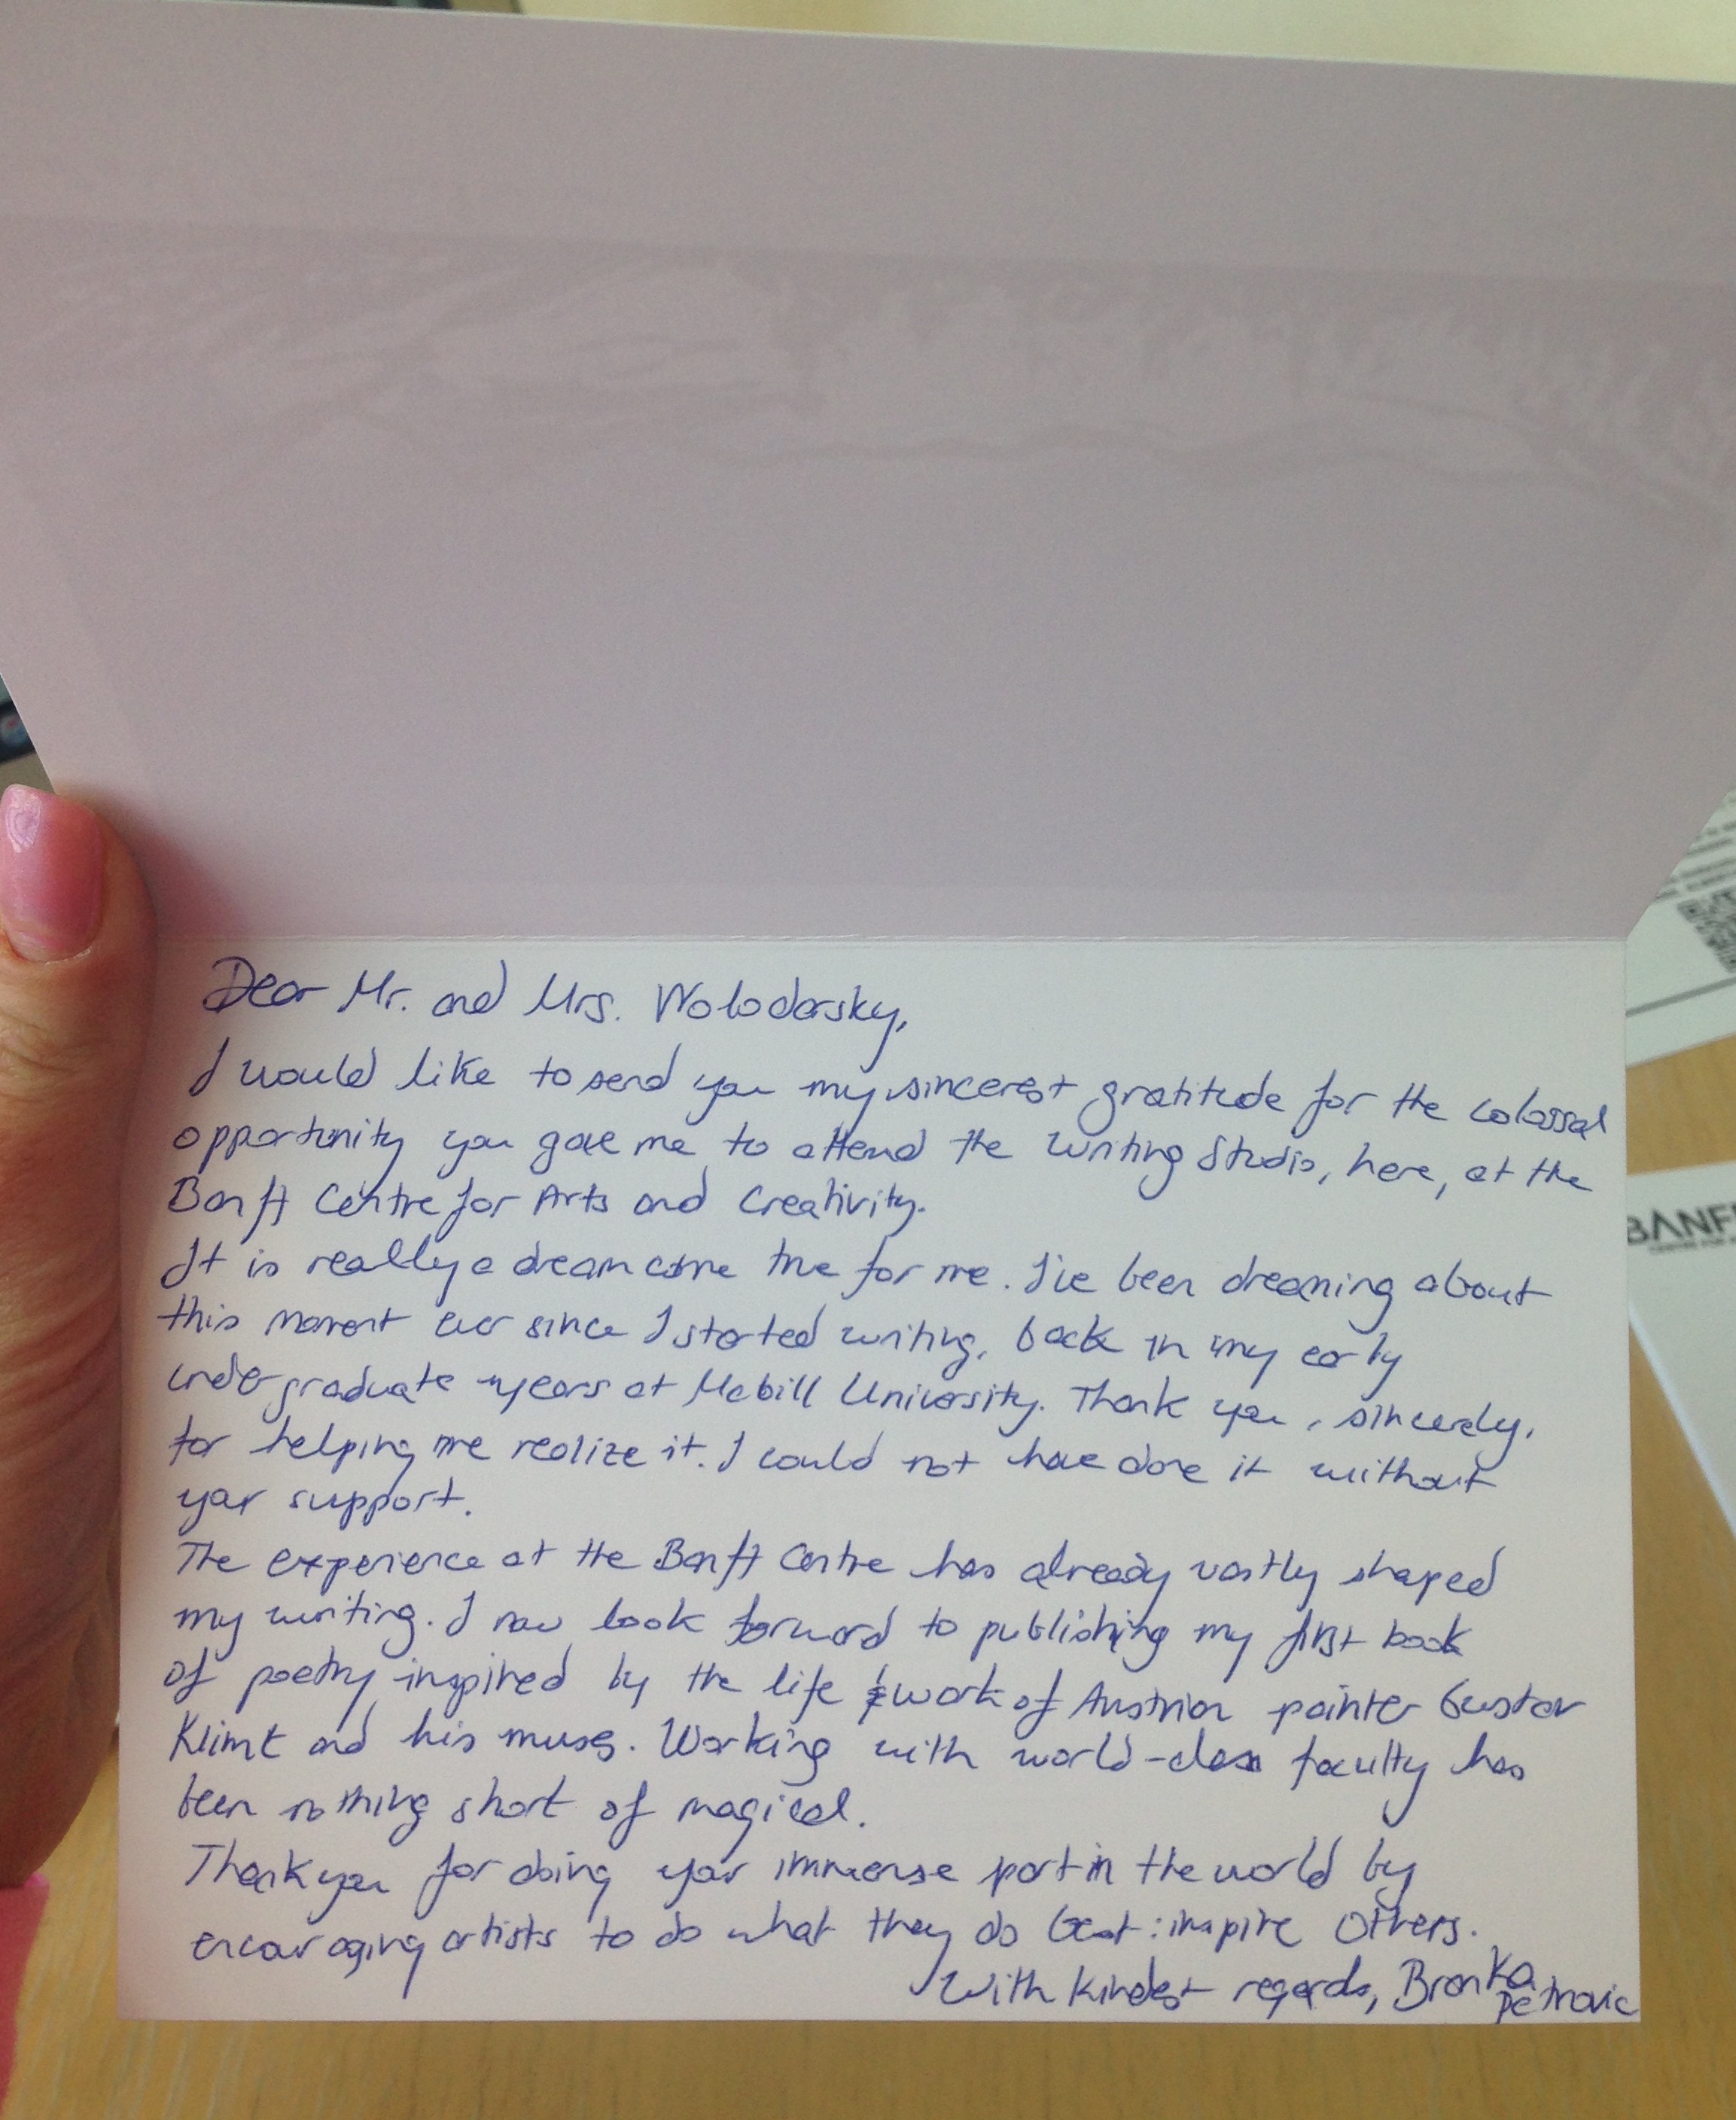 Dear Mr. and Mrs. Wolodarsky,
I would like to send you my sincerest gratitude for the colossal
opportunity you gave me to attend the Writing Studio, here, at the
Banff Centre for Arts and Creativity.
It is really a dream come true for me. I've been dreaming about
this moment ever since I started writing, back in my early
undergraduate years at McGill University. Thank you, sincerely,
for helping me realize it. I could not have done it without
your support.
The experience at the Banff Centre has already vastly shaped
my writing. I now look forward to publishing my first book
of poetry inspired by the life & work of Austrian painter Gustav
Klimt and his muses. Working with world-class faculty has
been nothing short of magical.
Thank you for doing your immense part in the world by
encouraging artists to do what they do best: inspire others.
With kindest regards, Bronka
Petrovic
BANF